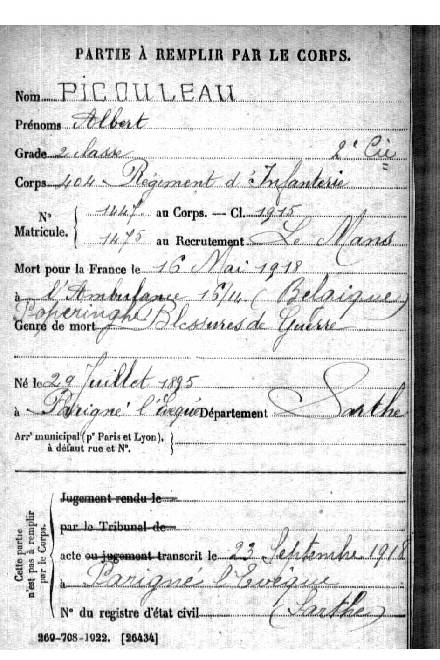 PARTIE À REMPLIR PAR LE CORPS.
Nom PICOULEAU
Prénoms Albert
Grade 2 classe 2e Cie
Corps 404 Régiment d'Infanterie
No Matricule. { 1447 au Corps. — Cl. 1915
1475 au Recrutement Le Mans
Mort pour la France le 16 Mai 1918
à l'Ambulance 16/14 (Belgique)
Poperinghe
Genre de mort Blessures de Guerre
Né le 29 Juillet 1895
à Parigné l'Evêque Département Sarthe
Arrt municipal (pr Paris et Lyon),
à défaut rue et No.
Cette partie n'est pas à remplir par le Corps.
Jugement rendu le
par le Tribunal de
acte ou jugement transcrit le 23 Septembre 1918
à Parigné l'Evêque
No du registre d'état civil (Sarthe)
269-708-1922. [26434]